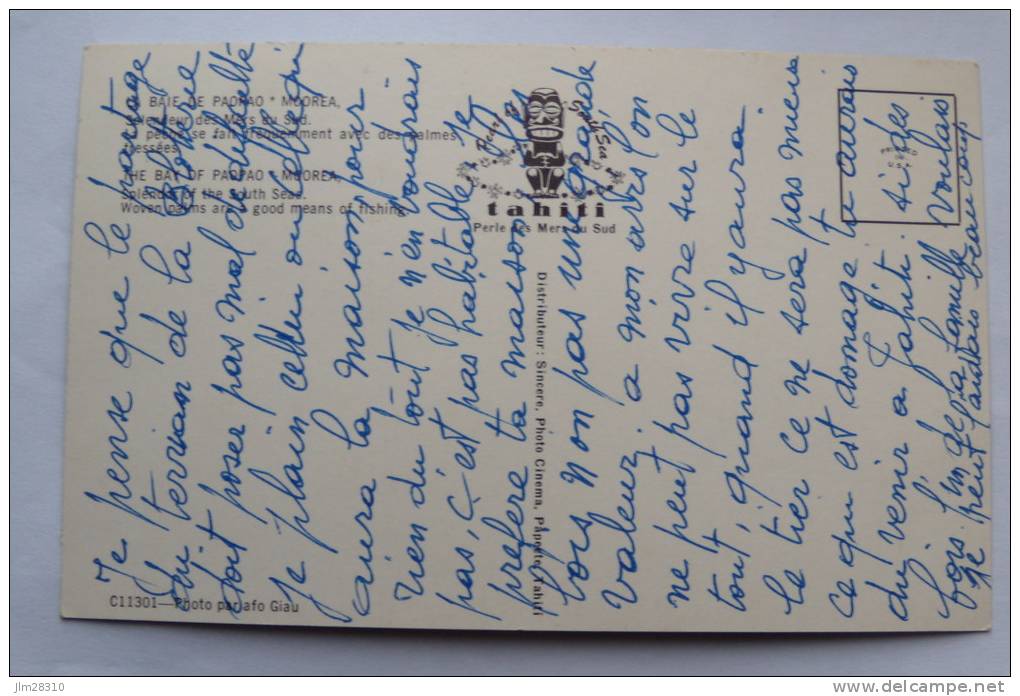 LA BAIE DE PAOPAO * MOOREA,
Splendeur des Mers du Sud.
La pêche se fait fréquemment avec des palmes
tressées.
THE BAY OF PAOPAO * MOOREA,
Splendor of the South Seas.
Woven palms are a good means of fishing
Pearl of South Sea
tahiti
Perle des Mers du Sud
Distributeur: Sincere, Photo Cinema, Papeete, Tahiti
C11301—Photo par afo Giau
Je pense que le partage
du terrian de la
doit poser pas mal
je plain cellui ou celle qui
aura la maison pour
rien du tout je n'en voudrais
pas, ç-est pas habitable. Je
prefere ta maison. Les
locs n'on pas une grande
valeur, a mon avis. l'on
ne peut pas vivre sur le
tout, quand il y aura
le tier ce ne sera pas mieu
ce qui est domage tu aurais
du venir a Tahiti. si des
fois l'un de la famille voulais
je peut aidais beaucoup
jlm28310
www.delcampe.net